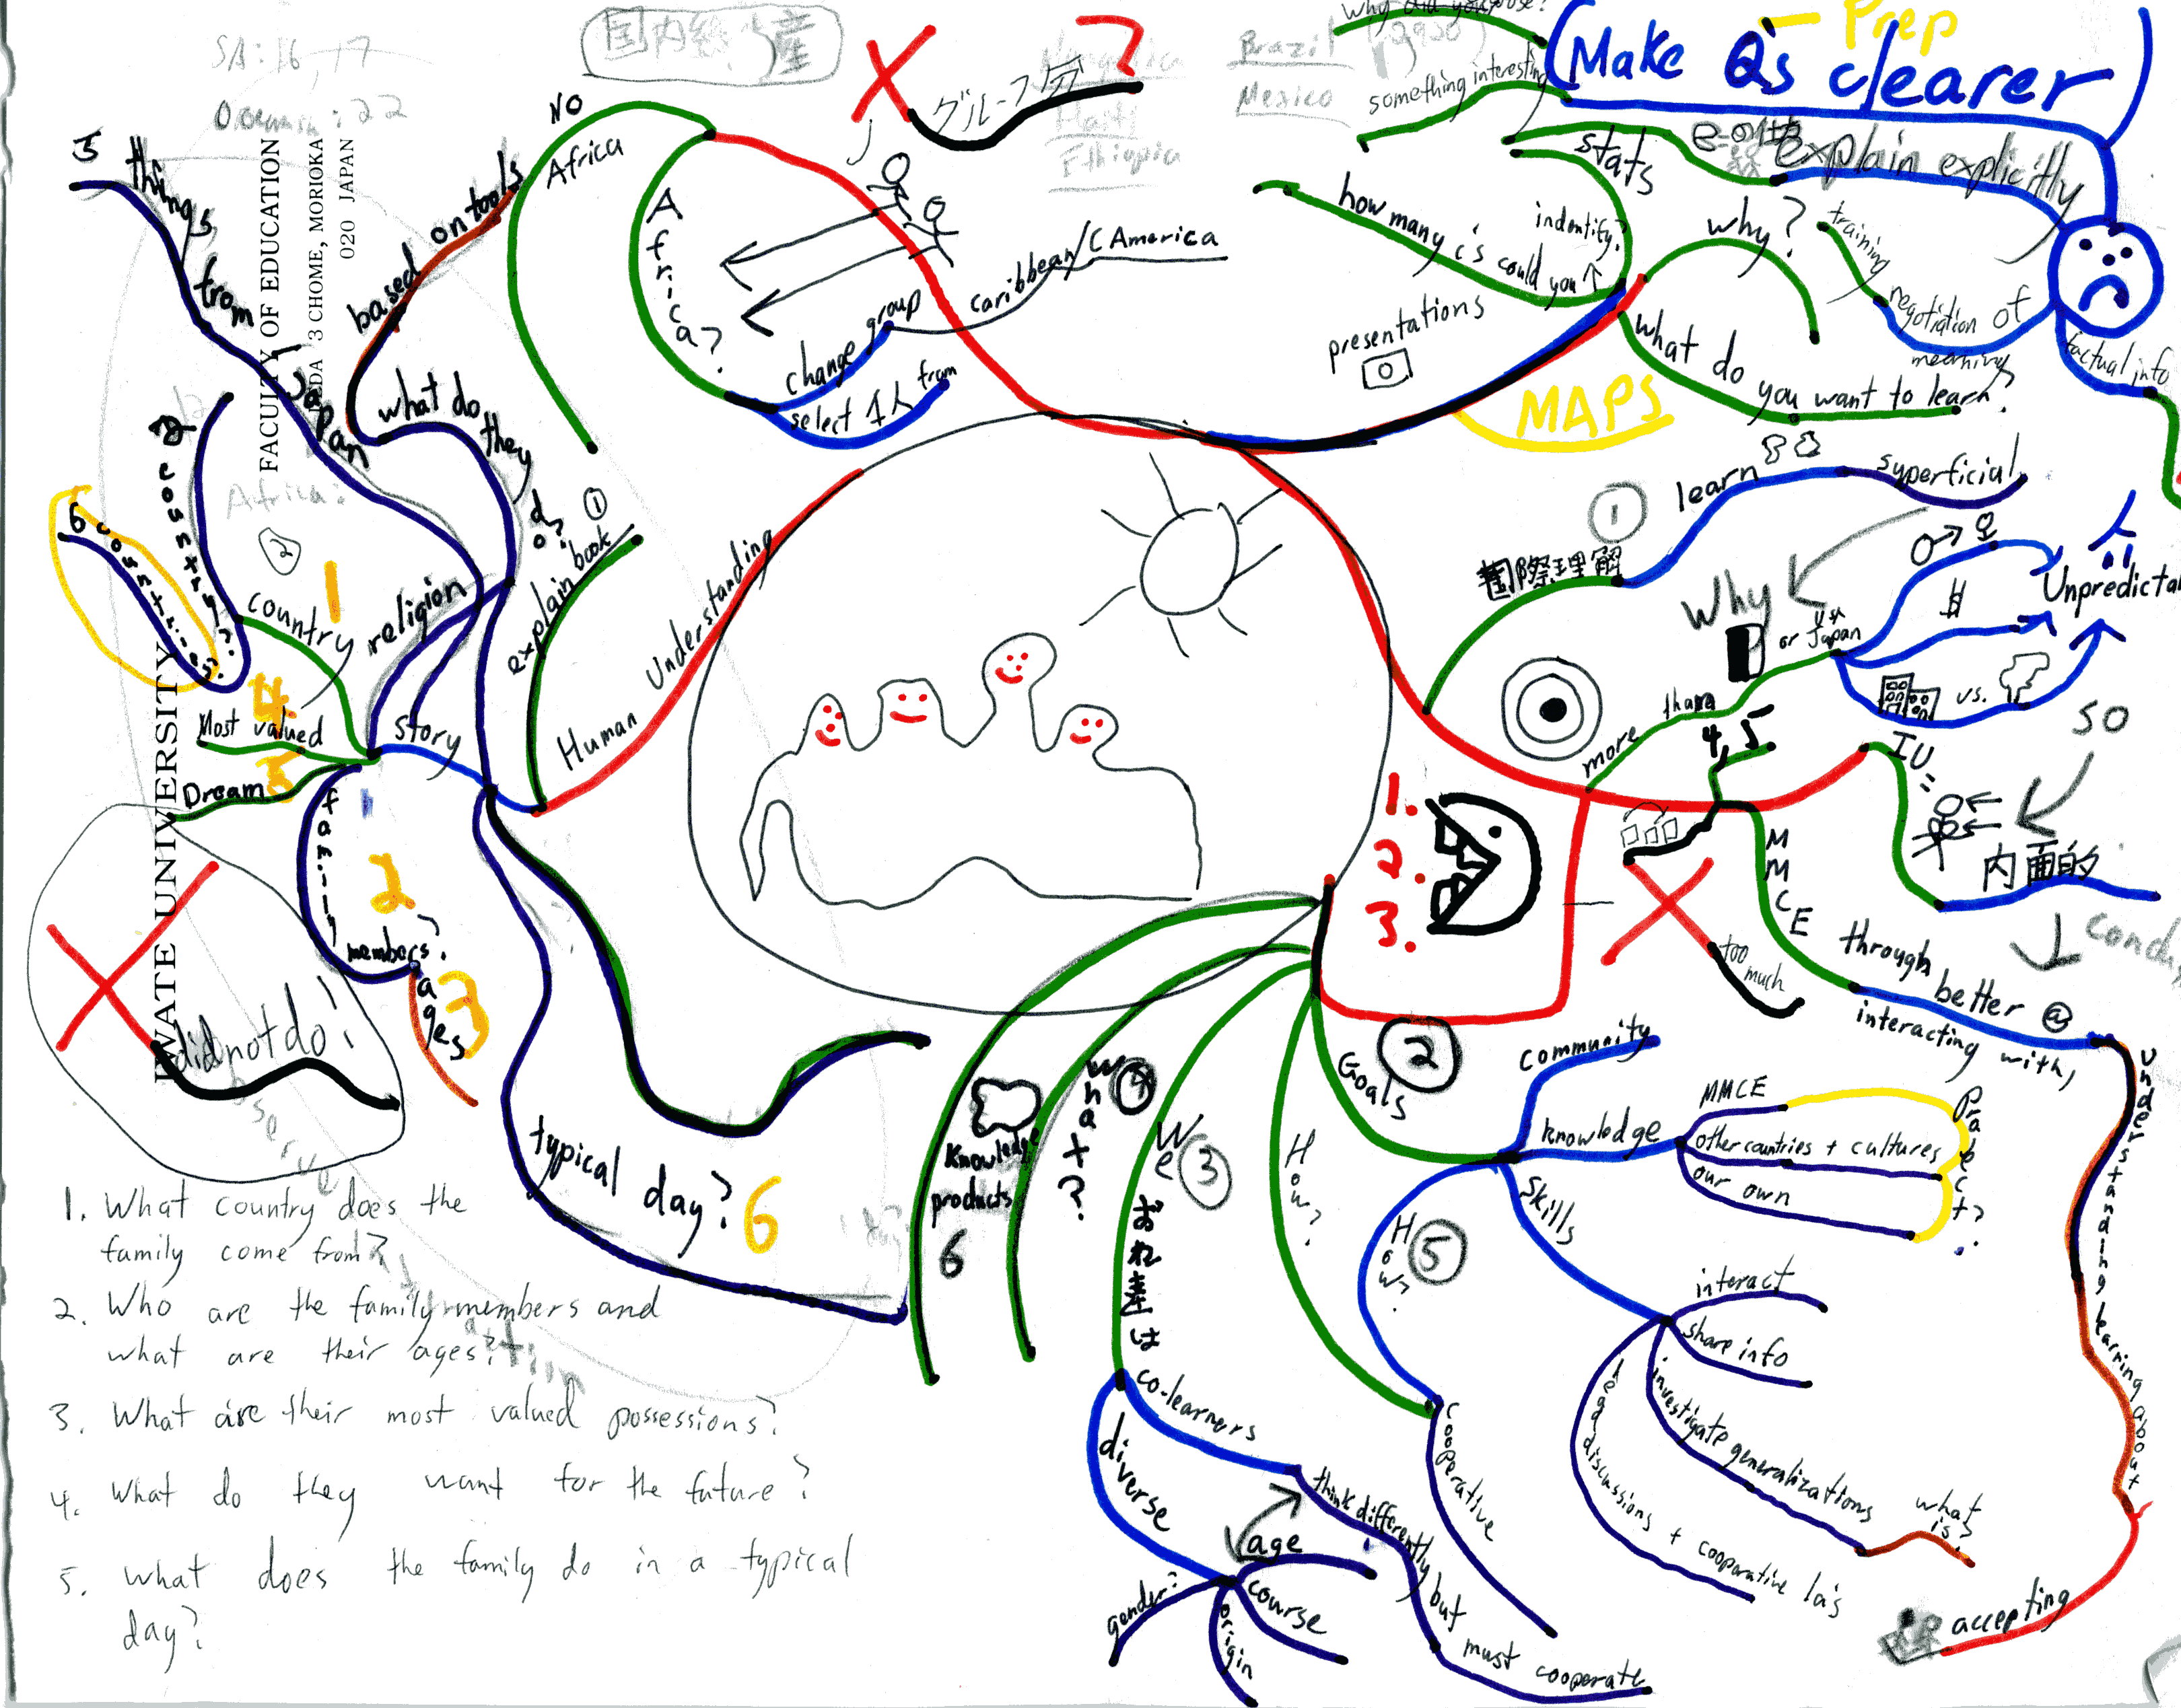 SA: 16, 17
Oceania: 22
国内総生産
グループ
Haiti
Ethiopia
Brazil
Mexico
something interesting
Prep
(Make Q's clearer)
explain explicitly
stats
indentify?
how many c's could you ↑
why?
training
negotiation of
meaning
factual info
what do you want to learn?
presentations
MAPS
NO
Africa
Africa?
change group
caribbean/C America
select 1人 from
5 things from Japan
based on tools
what do they do?
FACULTY OF EDUCATION
3 CHOME, MORIOKA
020 JAPAN
IWATE UNIVERSITY
Africa:
2
1
country
religion
explain book
1
Human Understanding
4
Most valued
5
Dream
story
family members?
2
ages
3
did not do!
observe
typical day?
6
1. What country does the
family come from?
2. Who are the family members and
what are their ages?
3. What are their most valued possessions?
4. What do they want for the future?
5. What does the family do in a typical
day?
1
learn
superficial
国際理解
Why
more than USA or Japan
$
vs.
Unpredicta
so
4, 5
IU=
内面的
MMCE
through better @
interacting with,
understanding learning about
accepting
too much
1.
2.
3.
2
Goals
community
knowledge
MMCE
other countries + cultures
our own
Skills
interact
share info
investigate generalizations
what is?
lead discussions + cooperative la's
How?
5
How?
cooperative
We
3
おれ達は
co-learners
think differently but must cooperate
diverse
age
gender?
origin
course
What?
4
Knowledge
products
6